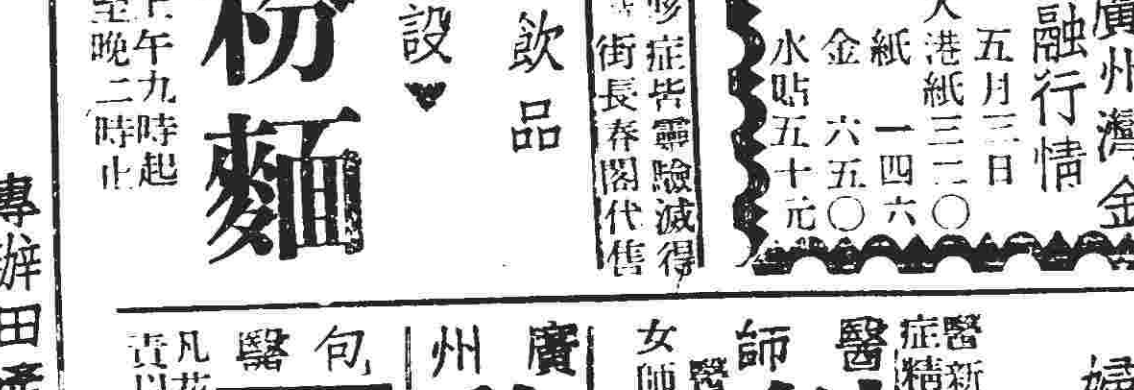 廣州灣金
融行情
五月三日
大港紙三二〇
紙一四六
金六五〇
水貼五十元
症皆靈驗滅得
街長春閣代售
飲品
設
粉麵
上午九時起
至晚二時止
專辦田產
婦
醫新
症精
醫師
女師
醫
廣州
句醫
凡花
責以